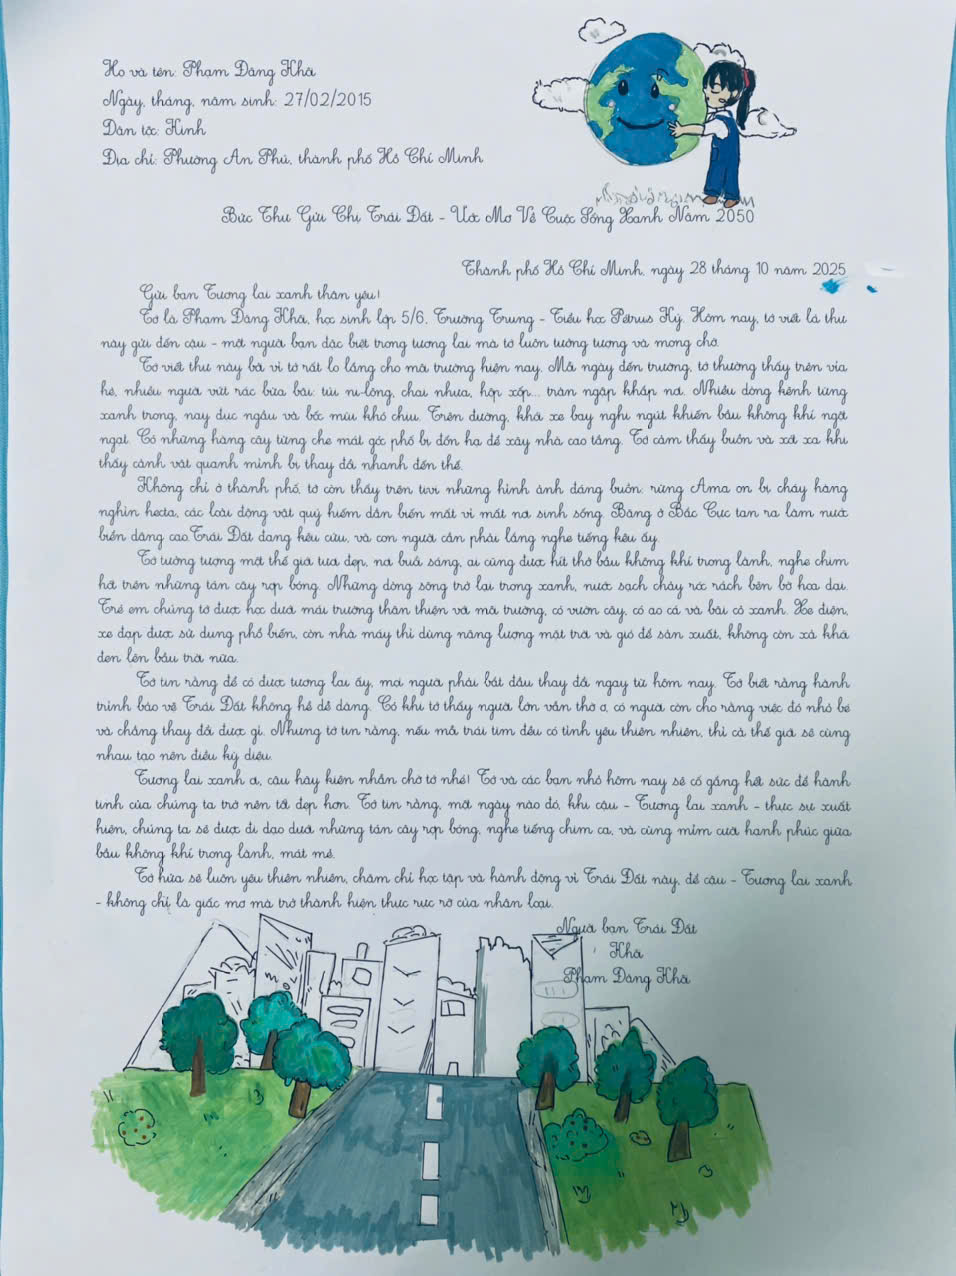 Họ và tên: Phạm Đăng Khôi
Ngày, tháng, năm sinh: 27/02/2015
Dân tộc: Kinh
Địa chỉ: Phường An Phú, thành phố Hồ Chí Minh
Bức Thư Gửi Chị Trái Đất - Ước Mơ Về Cuộc Sống Xanh Năm 2050
Thành phố Hồ Chí Minh, ngày 28 tháng 10 năm 2025
Gửi bạn Tương lai xanh thân yêu!
Tớ là Phạm Đăng Khôi, học sinh lớp 5/6, Trường Trung - Tiểu học Pétrus Ký. Hôm nay, tớ viết lá thư
này gửi đến cậu - một người bạn đặc biệt trong tương lai mà tớ luôn tưởng tượng và mong chờ.
Tớ viết thư này bởi vì tớ rất lo lắng cho môi trường hiện nay. Mỗi ngày đến trường, tớ thường thấy trên vỉa
hè, nhiều người vứt rác bừa bãi: túi ni-lông, chai nhựa, hộp xốp... tràn ngập khắp nơi. Nhiều dòng kênh từng
xanh trong, nay đục ngầu và bốc mùi khó chịu. Trên đường, khói xe bay nghi ngút khiến bầu không khí ngột
ngạt. Có những hàng cây từng che mát góc phố bị đốn hạ để xây nhà cao tầng. Tớ cảm thấy buồn và xót xa khi
thấy cảnh vật quanh mình bị thay đổi nhanh đến thế.
Không chỉ ở thành phố, tớ còn thấy trên tivi những hình ảnh đáng buồn: rừng Ama on bị cháy hàng
nghìn hecta, các loài động vật quý hiếm dần biến mất vì mất nơi sinh sống. Băng ở Bắc Cực tan ra làm nước
biển dâng cao.Trái Đất đang kêu cứu, và con người cần phải lắng nghe tiếng kêu ấy.
Tớ tưởng tượng một thế giới tươi đẹp, nơi buổi sáng, ai cũng được hít thở bầu không khí trong lành, nghe chim
hót trên những tán cây rợp bóng. Những dòng sông trở lại trong xanh, nước sạch chảy róc rách bên bờ hoa dại.
Trẻ em chúng tớ được học dưới mái trường thân thiện với môi trường, có vườn cây, có ao cá và bãi cỏ xanh. Xe điện,
xe đạp được sử dụng phổ biến, còn nhà máy thì dùng năng lượng mặt trời và gió để sản xuất, không còn xả khói
đen lên bầu trời nữa.
Tớ tin rằng để có được tương lai ấy, mọi người phải bắt đầu thay đổi ngay từ hôm nay. Tớ biết rằng hành
trình bảo vệ Trái Đất không hề dễ dàng. Có khi tớ thấy người lớn vẫn thờ ơ, có người còn cho rằng việc đó nhỏ bé
và chẳng thay đổi được gì. Nhưng tớ tin rằng, nếu mỗi trái tim đều có tình yêu thiên nhiên, thì cả thế giới sẽ cùng
nhau tạo nên điều kỳ diệu.
Tương lai xanh ơi, cậu hãy kiên nhẫn chờ tớ nhé! Tớ và các bạn nhỏ hôm nay sẽ cố gắng hết sức để hành
tinh của chúng ta trở nên tốt đẹp hơn. Tớ tin rằng, một ngày nào đó, khi cậu - Tương lai xanh - thực sự xuất
hiện, chúng ta sẽ được đi dạo dưới những tán cây rợp bóng, nghe tiếng chim ca, và cùng mỉm cười hạnh phúc giữa
bầu không khí trong lành, mát mẻ.
Tớ hứa sẽ luôn yêu thiên nhiên, chăm chỉ học tập và hành động vì Trái Đất này, để cậu - Tương lai xanh
- không chỉ là giấc mơ mà trở thành hiện thực rực rỡ của nhân loại.
Người bạn Trái Đất
Khôi
Phạm Đăng Khôi